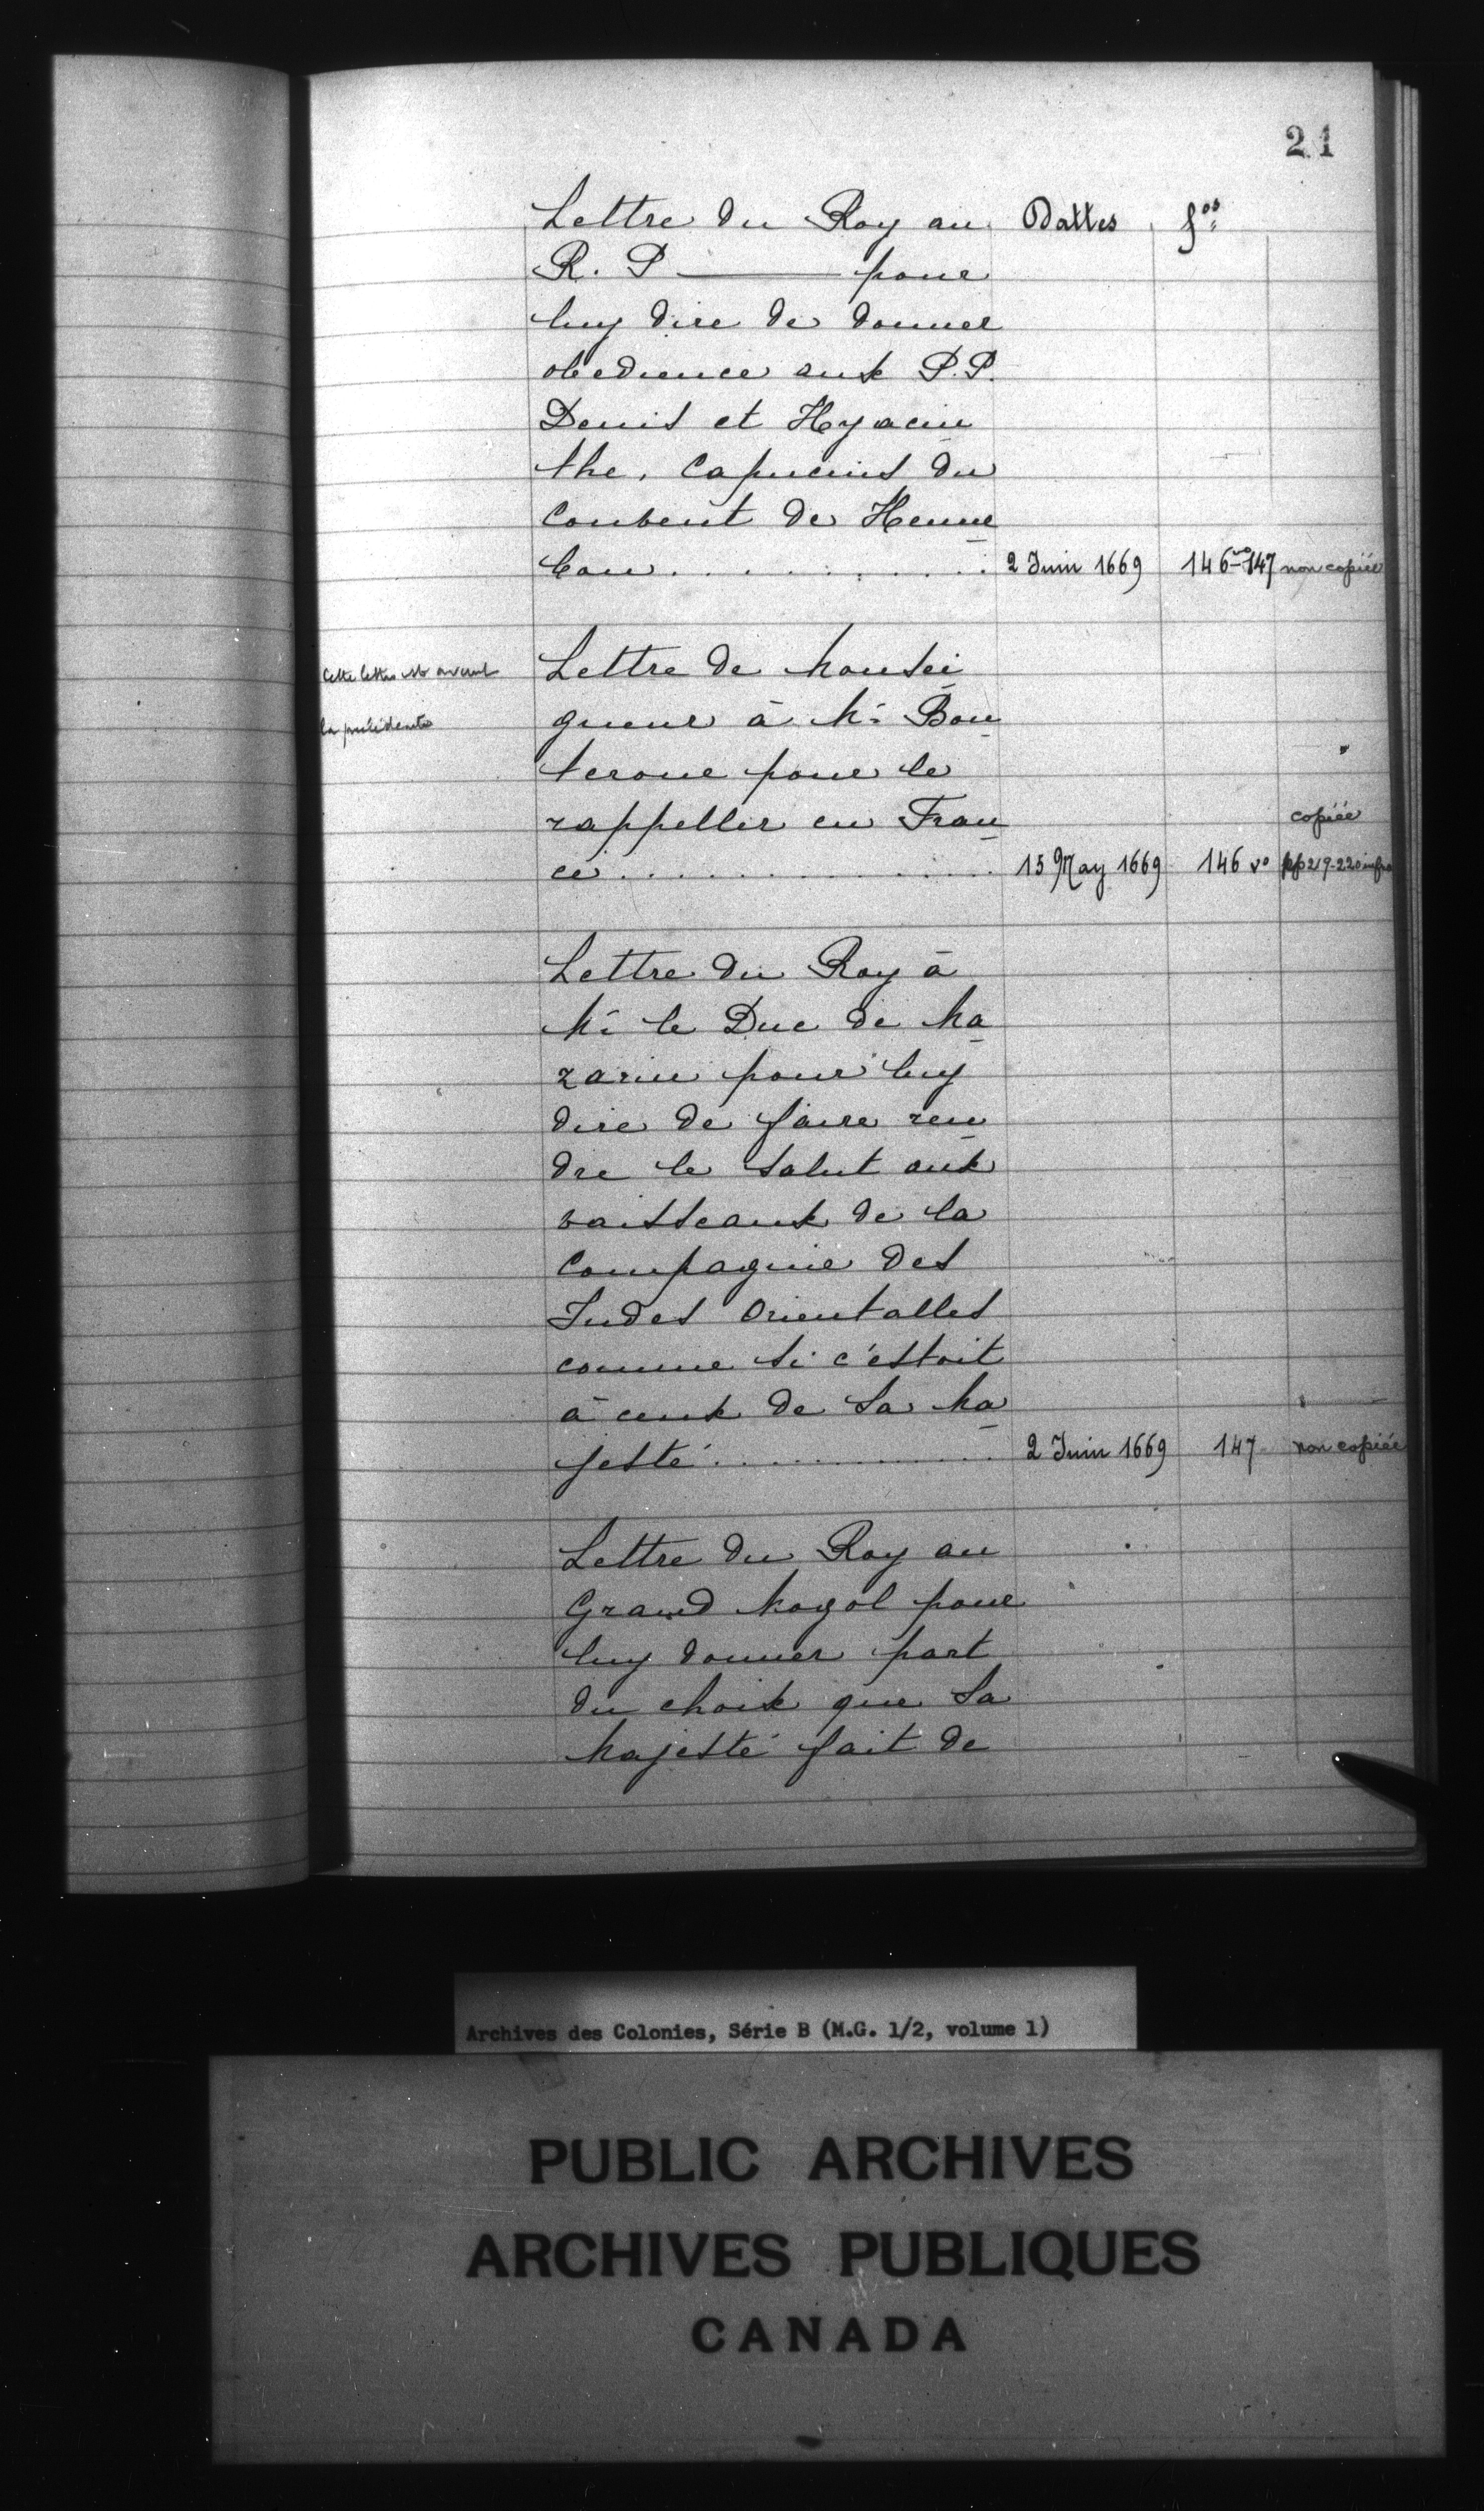 21
Lettre du Roy au Dattes fos
R. P ——— pour
luy dire de donner
obedience aux P.P.
Denis et Hyacin
the, Capucins du
Couvent de Henne
bon............ 2 Juin 1669 146 vo-147 non copiée
Cette lettre est avant
la précédente
Lettre de Monsei
gneur à Mr Bou
teroue pour le
rappeller en Fran
copiée
ce............ 15 May 1669 146 vo pp 219-220 infra
Lettre du Roy à
Mr le Duc de Ma
zarin pour luy
dire de faire ren
dre le salut aux
vaisseaux de la
Compagnie des
Indes Orientalles
comme si c'estoit
à ceux de Sa Ma
jesté............ 2 Juin 1669 147 non copiée
Lettre du Roy au
Grand Mogol pour
luy donner part
du choix que Sa
Majesté fait de
Archives des Colonies, Série B (M.G. 1/2, volume 1)
PUBLIC ARCHIVES
ARCHIVES PUBLIQUES
CANADA